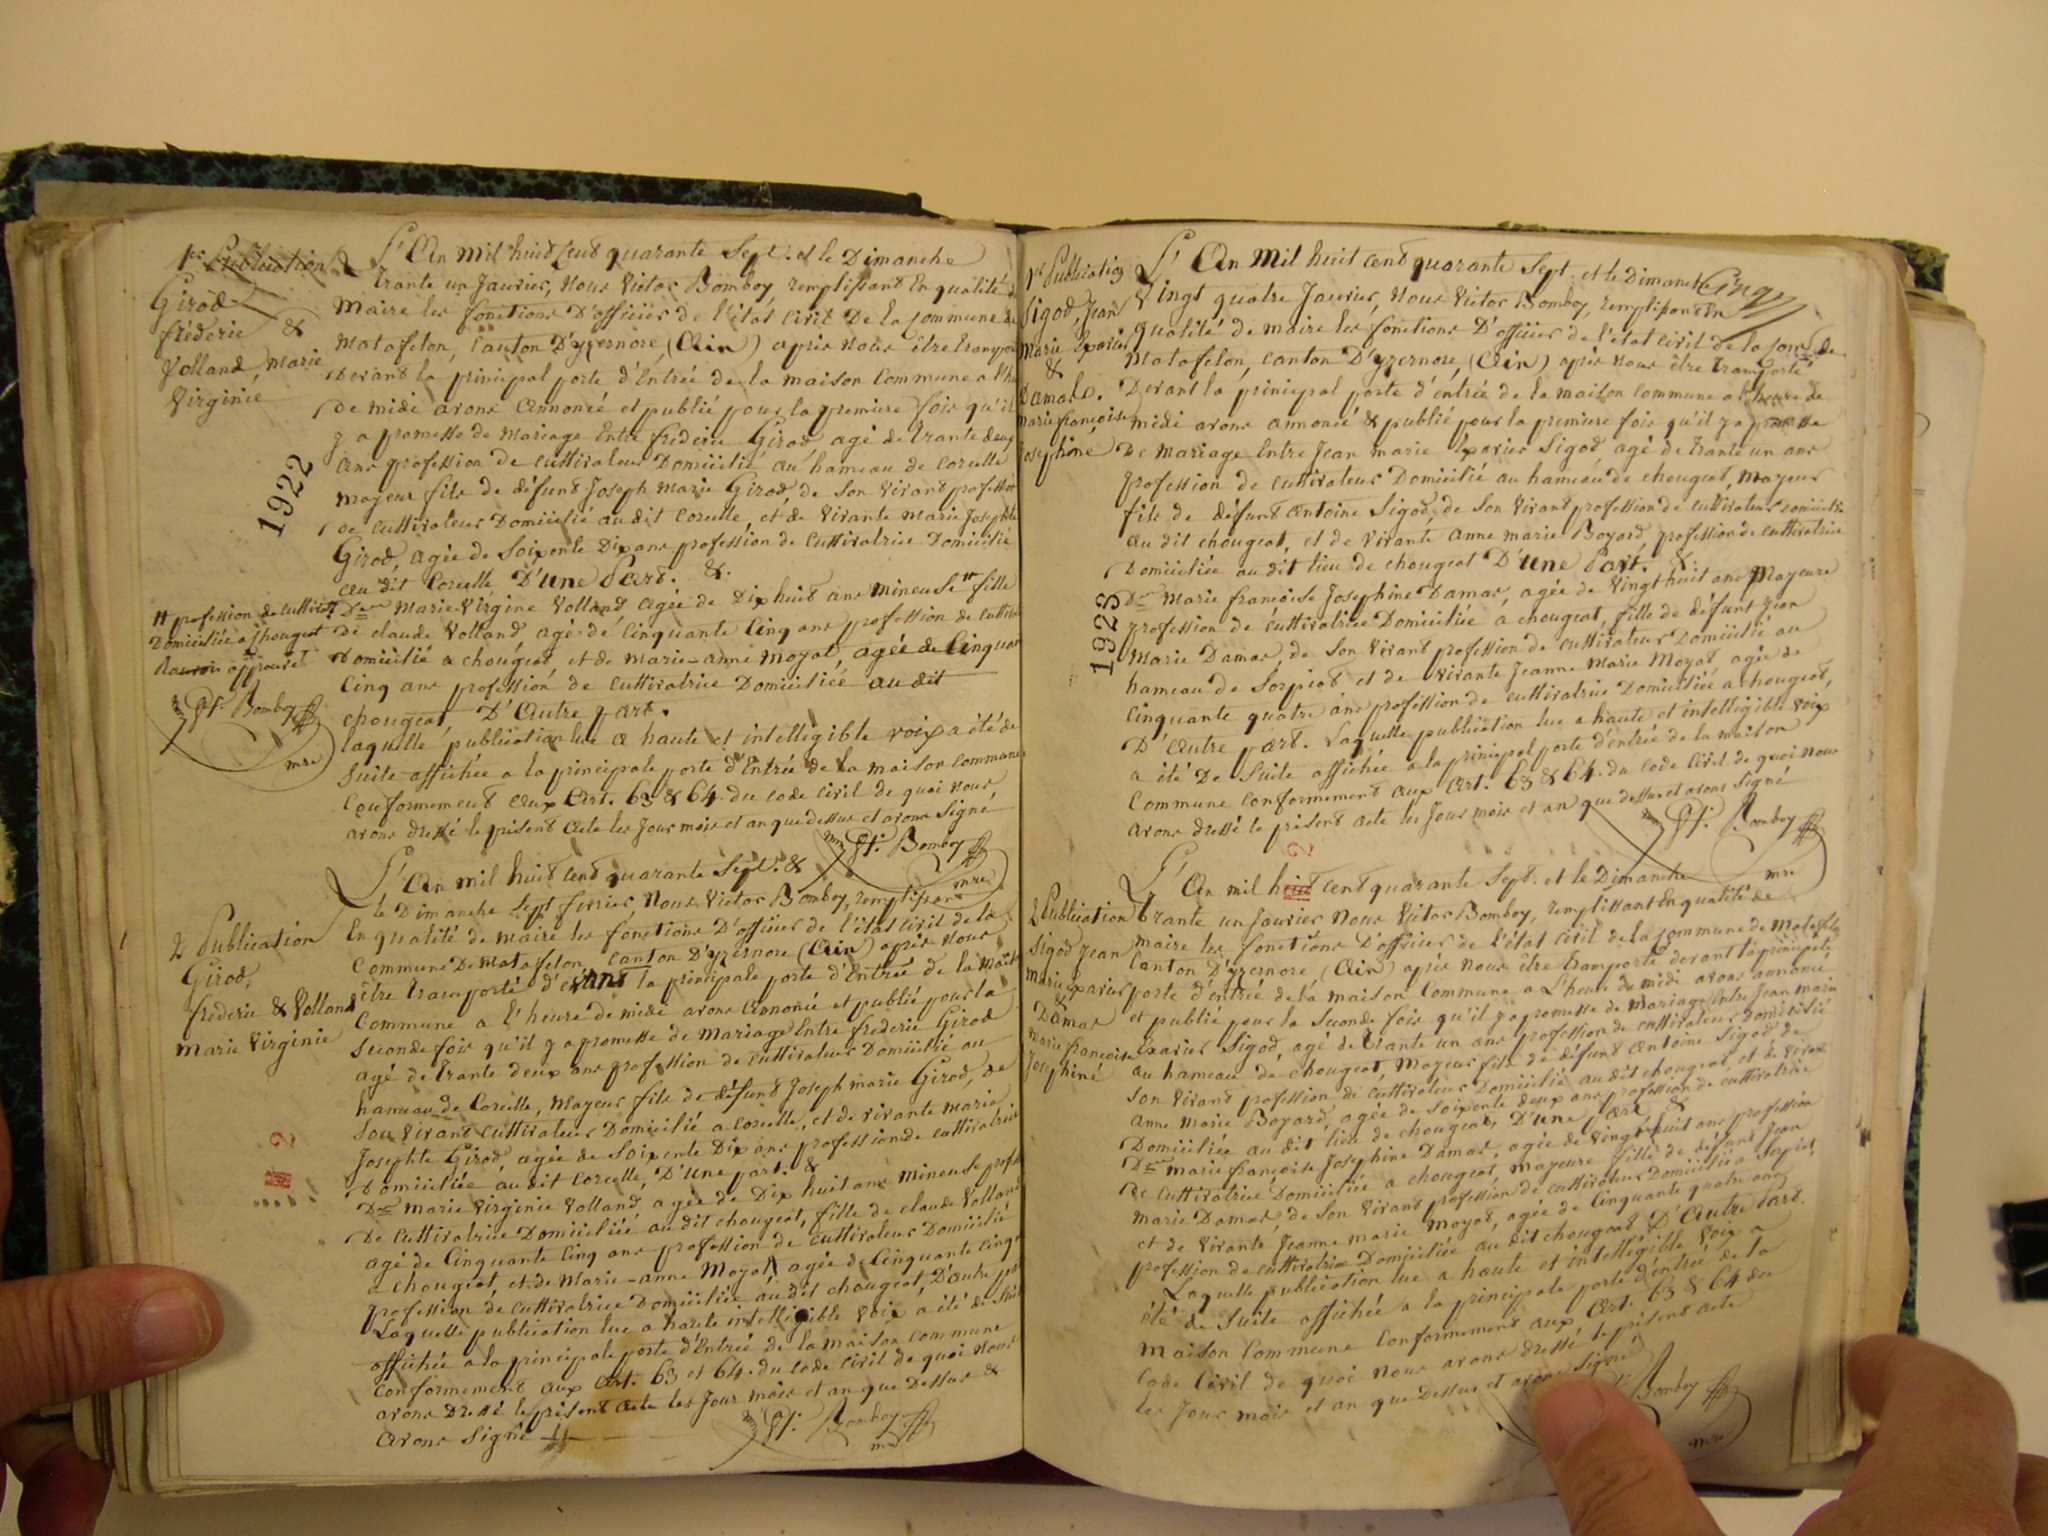 1re Publication
Girod
frédéric &
Volland, Marie
Virginie
1922
L'An mil huit Cent quarante Sept. et le Dimanche
trante un Janvier, Nous Victor Bomboy remplissant En qualité de
Maire les fonctions D'officier de l'état Civil De la Commune de
Matafelon, Canton D'yzernore, (Ain) après Nous être transporté
Devant la principal porte d'Entrée de la maison Commune a l'heure
de midi avons Annoncé et publié pour la première fois qu'il
y a promesse de Mariage Entre fréderic Girod agé de trante deux
Ans profession de Cultivateur Domicilié au hameau de Corcelle
mayeur fils de défunt Joseph Marie Girod, de Son Vivant profession
de Cultivateur Domicilié audit Corcelle, et de Vivante Marie Josephte
Girod, agée de Soixante Dix ans profession de Cultivatrice Domicilié
au dit Corcelle, D'une Part. &.
Dlle Marie Virginie Volland agée de Dix huit ans mineuse # fille
de claude Volland, agé de Cinquante Cinq ans profession de Cultiv
Domicilié a chougeat, et de Marie-anne Moyat, agée de Cinquante
Cinq ans profession de Cultivatrice Domiciliée au dit
chougeat, D'Autre part.
laquelle publication lue a haute et intelligible voix a été de
Suite affichée a la principale porte d'Entrée de la maison Commune
Conformement aux Art. 63 & 64. du Code Civil de quoi Nous,
avons dressé le présent acte les Jour mois et an que dessus et avons Signé
# profession de cultivat
Domiciliée a chougeat
Renvoi approuvé
Vt. Bomboy
mre
Vt. Bomboy
mre
2e Publication
Girod,
fréderic & Volland
Marie Virginie
L'An mil huit Cent quarante Sept. &
le Dimanche Sept février, Nous Victor Bomboy, remplissant
En qualité de maire les fonctions D'officier de l'état Civil de la
Commune De Matafelon Canton D'yzernore (Ain) après Nous
être transporté devant la principale porte d'Entrée de la Maison
Commune a l'heure de midi avons Annoncé et publié pour la
Seconde fois qu'il y a promesse de Mariage Entre fréderic Girod
agé de trante deux ans profession de Cultivateur Domicilié au
hameau de Corcelle, Mayeur fils de défunt Joseph marie Girod, de
Son Vivant Cultivateur Domicilié a corcelle, et de vivante marie
Josephte Girod, agée de Soixante Dix ans profession de cultivatrice
Domiciliée au dit Corcelle, D'Une part. &
Dlle Marie Virginie Volland, agée de Dix huit ans mineuse profes
De Cultivatrice Domiciliée au dit chougeat, fille de claude Volland
agé de Cinquante Cinq ans profession de Cultivateur Domicilié
a chougeat, et de Marie-anne Moyat, agée de Cinquante Cinq
profession de cultivatrice Domiciliée au dit chougeat, D'autre part
Laquelle publication lue a haute intelligible Voix a été de Suite
affichée a la principale porte d'Entrée de la maison Commune
Conformement aux Art. 63 et 64. du Code Civil de quoi Nous
avons Dressé le présent Acte les Jour mois et an que Dessus &
avons Signé
Vt. Bomboy
mre
1re Publication
Sigod, Jean
Marie Exavier
&
Damas.
Marie françoise
Josephine
1923
Cinq
L'An Mil huit Cent quarante Sept. et le Dimanche
Vingt quatre Janvier, Nous Victor Bomboy, remplissant En
qualité de maire les fonctions D'officier de l'état Civil De la Comne de
Matafelon, Canton D'yzernore, (Ain) après Nous être transporté
Devant la principal porte d'entrée de la maison Commune a l'heure de
midi avons annoncé & publié pour la premiere fois qu'il y a promesse
De Mariage Entre Jean marie Exavier Sigod, agé de trante un ans
profession de Cultivateur Domicilié au hameau de chougeat, Mayeur
fils de défunt Antoine Sigod, de Son Vivant profession de Cultivateur Domicilié
au dit chougeat, et de Vivante Anne marie Boyard, profession de cultivatrice
Domiciliée au dit lieu de chougeat D'une Part. &.
Dlle Marie françoise Josephine Damas, agée de Vingt huit ans Mayeure
profession de Cultivatrice Domiciliée a chougeat, fille de défunt Jean
Marie Damas, de Son Vivant profession de Cultivateur Domicilié au
hameau de Sorpiat et de Vivante Jeanne Marie Moyat, agée de
Cinquante quatre ans profession de Cultivatrice Domiciliée a chougeat,
D'Autre part. Laquelle publication lue a haute et intelligible voix
a été De Suite affichée a la principal porte d'entrée de la maison
Commune Conformement aux Art. 63 & 64. du Code Civil de quoi Nous
avons dressé le présent acte les Jour mois et an que dessus et avons Signé
Vt. Bomboy
mre
2 Publication
Sigod Jean
Marie Exavier
&
Damas
Marie françoise
Josephine
L'An mil huit Cent quarante Sept. et le Dimanche
trante un Janvier Nous Victor Bomboy, remplissant En qualité de
maire les fonctions D'officier de l'état Civil de la Commune de Matafelon
Canton D'yzernore (Ain) après Nous être transporté devant la principale
porte d'entrée de la maison Commune a L'heure de midi avons annoncé
et publié pour la Seconde fois qu'il y a promesse de Mariage Entre Jean marie
Exavier Sigod, agé de trante un ans profession de cultivateur Domicilié
au hameau de chougeat, Mayeur fils de défunt Antoine Sigod de
Son Vivant profession de cultivateur Domicilié au dit chougeat, et de Vivante
anne Marie Boyard, agée de Soixante deux ans profession de cultivatrice
Domiciliée au dit lieu de chougeat, D'une Part, &
Dlle Marie françoise Josephine Damas, agée de Vingt huit ans profession
de Cultivatrice Domiciliée a chougeat, mayeure fille de défunt Jean
Marie Damas, de Son Vivant profession de cultivateur Domicilié a Sorpiat,
et de Vivante Jeanne marie Moyat, agée de Cinquante quatre ans
profession de cultivatrice Domiciliée au dit chougeat D'Autre Part.
Laquelle publication lue a haute et intelligible Voix a
été de Suite affichée a la principale porte d'entrée de la
maison Commune Conformement aux Art. 63 & 64 du
Code Civil de quoi Nous avons dressé le présent acte
les Jour mois et an que Dessus et avons Signé
Bomboy
mre